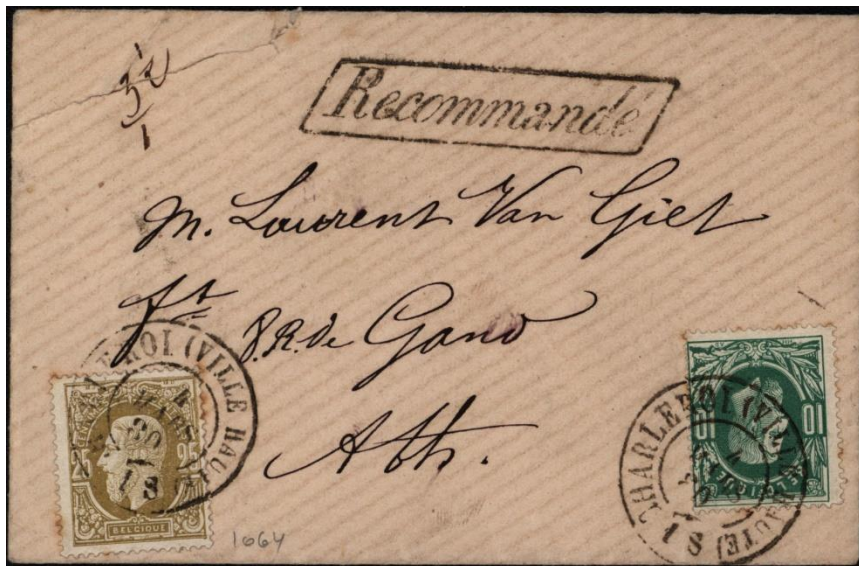 Recommandé
M. Laurent Van Giel
8. R. de Gand
Ath.
CHARLEROI (VILLE HAUTE)
4
MARS
1 S
25 25
BELGIQUE
1064
CHARLEROI (VILLE HAUTE)
1 S
10 10